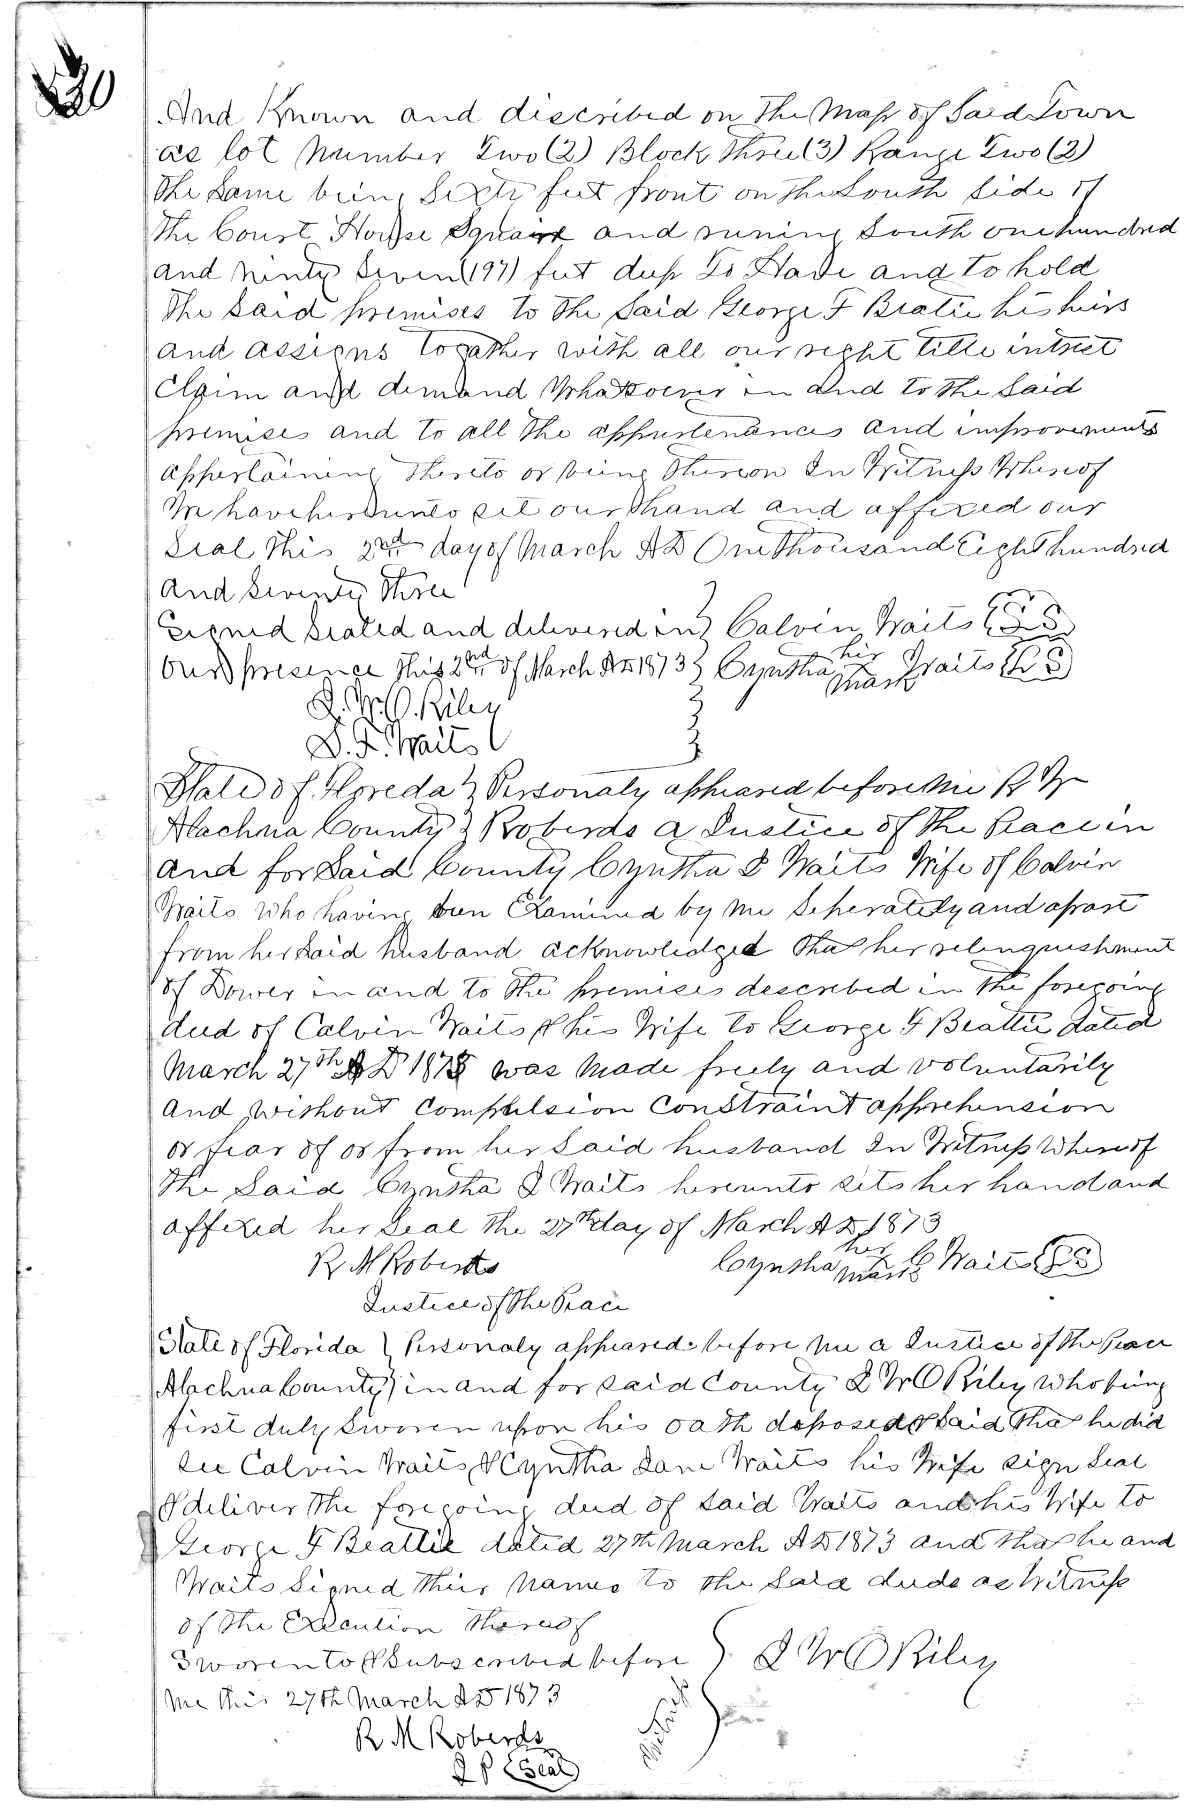 And Known and discribed on the Map of Said Town
as lot Number Two (2) Block three (3) Range Two (2)
the Same being Sixty feet front on the South Side of
the Court House Square and runing South one hundred
and Ninty Seven (197) feet deep To Have and to hold
the Said premises to the Said George F Beatie his heirs
and assigns togather with all our right title intrest
Claim and demand Whatsoever in and to the Said
premises and to all the appurtenances and improvements
appertaining thereto or being thereon In Witness Whereof
We have hereunto set our hand and affixed our
Seal this 2nd day of March AD One thousand Eight hundred
and Seventy three
Signed Sealed and delivered in } Calvin Waits LS
our presence this 2nd of March AD 1873 } Cyntha his X mark Waits LS
J. W. O. Riley
S. F. Waits
State of Floreda } Personaly appeared before Me R W
Alachua County } Roberds a Justice of the Peace in
and for Said County Cyntha J Waits Wife of Calvin
Waits Who having ben Examined by me Seherately and apart
from her Said husband acknowledged that her relenquishment
of Dower in and to the premises described in the foregoing
deed of Calvin Waits & his Wife to George F Beattie dated
March 27th AD 1873 was Made freely and voluntarily
and without compulsion constraint apprehension
or fear of or from her Said husband In Witness Whereof
the Said Cyntha J Waits hereunto sets her hand and
affixed her Seal the 27th day of March AD 1873
R M Roberds Cyntha her X mark C Waits LS
Justice of the Peace
State of Florida } Personaly appeared before me a Justice of the Peace
Alachua County } in and for said County J W O Riley who being
first duly Sworen upon his oath deposed & Said that he did
see Calvin Waits & Cyntha Jane Waits his Wife sign Seal
& deliver the foregoing deed of said Waits and his Wife to
George F Beattie dated 27th March AD 1873 and that he and
Waits Signed their Names to the Said deeds as Witness
of the Execution thereof
Sworen to & Subscribed before } J W O Riley
me this 27th March AD 1873
R M Roberds
J P Seal